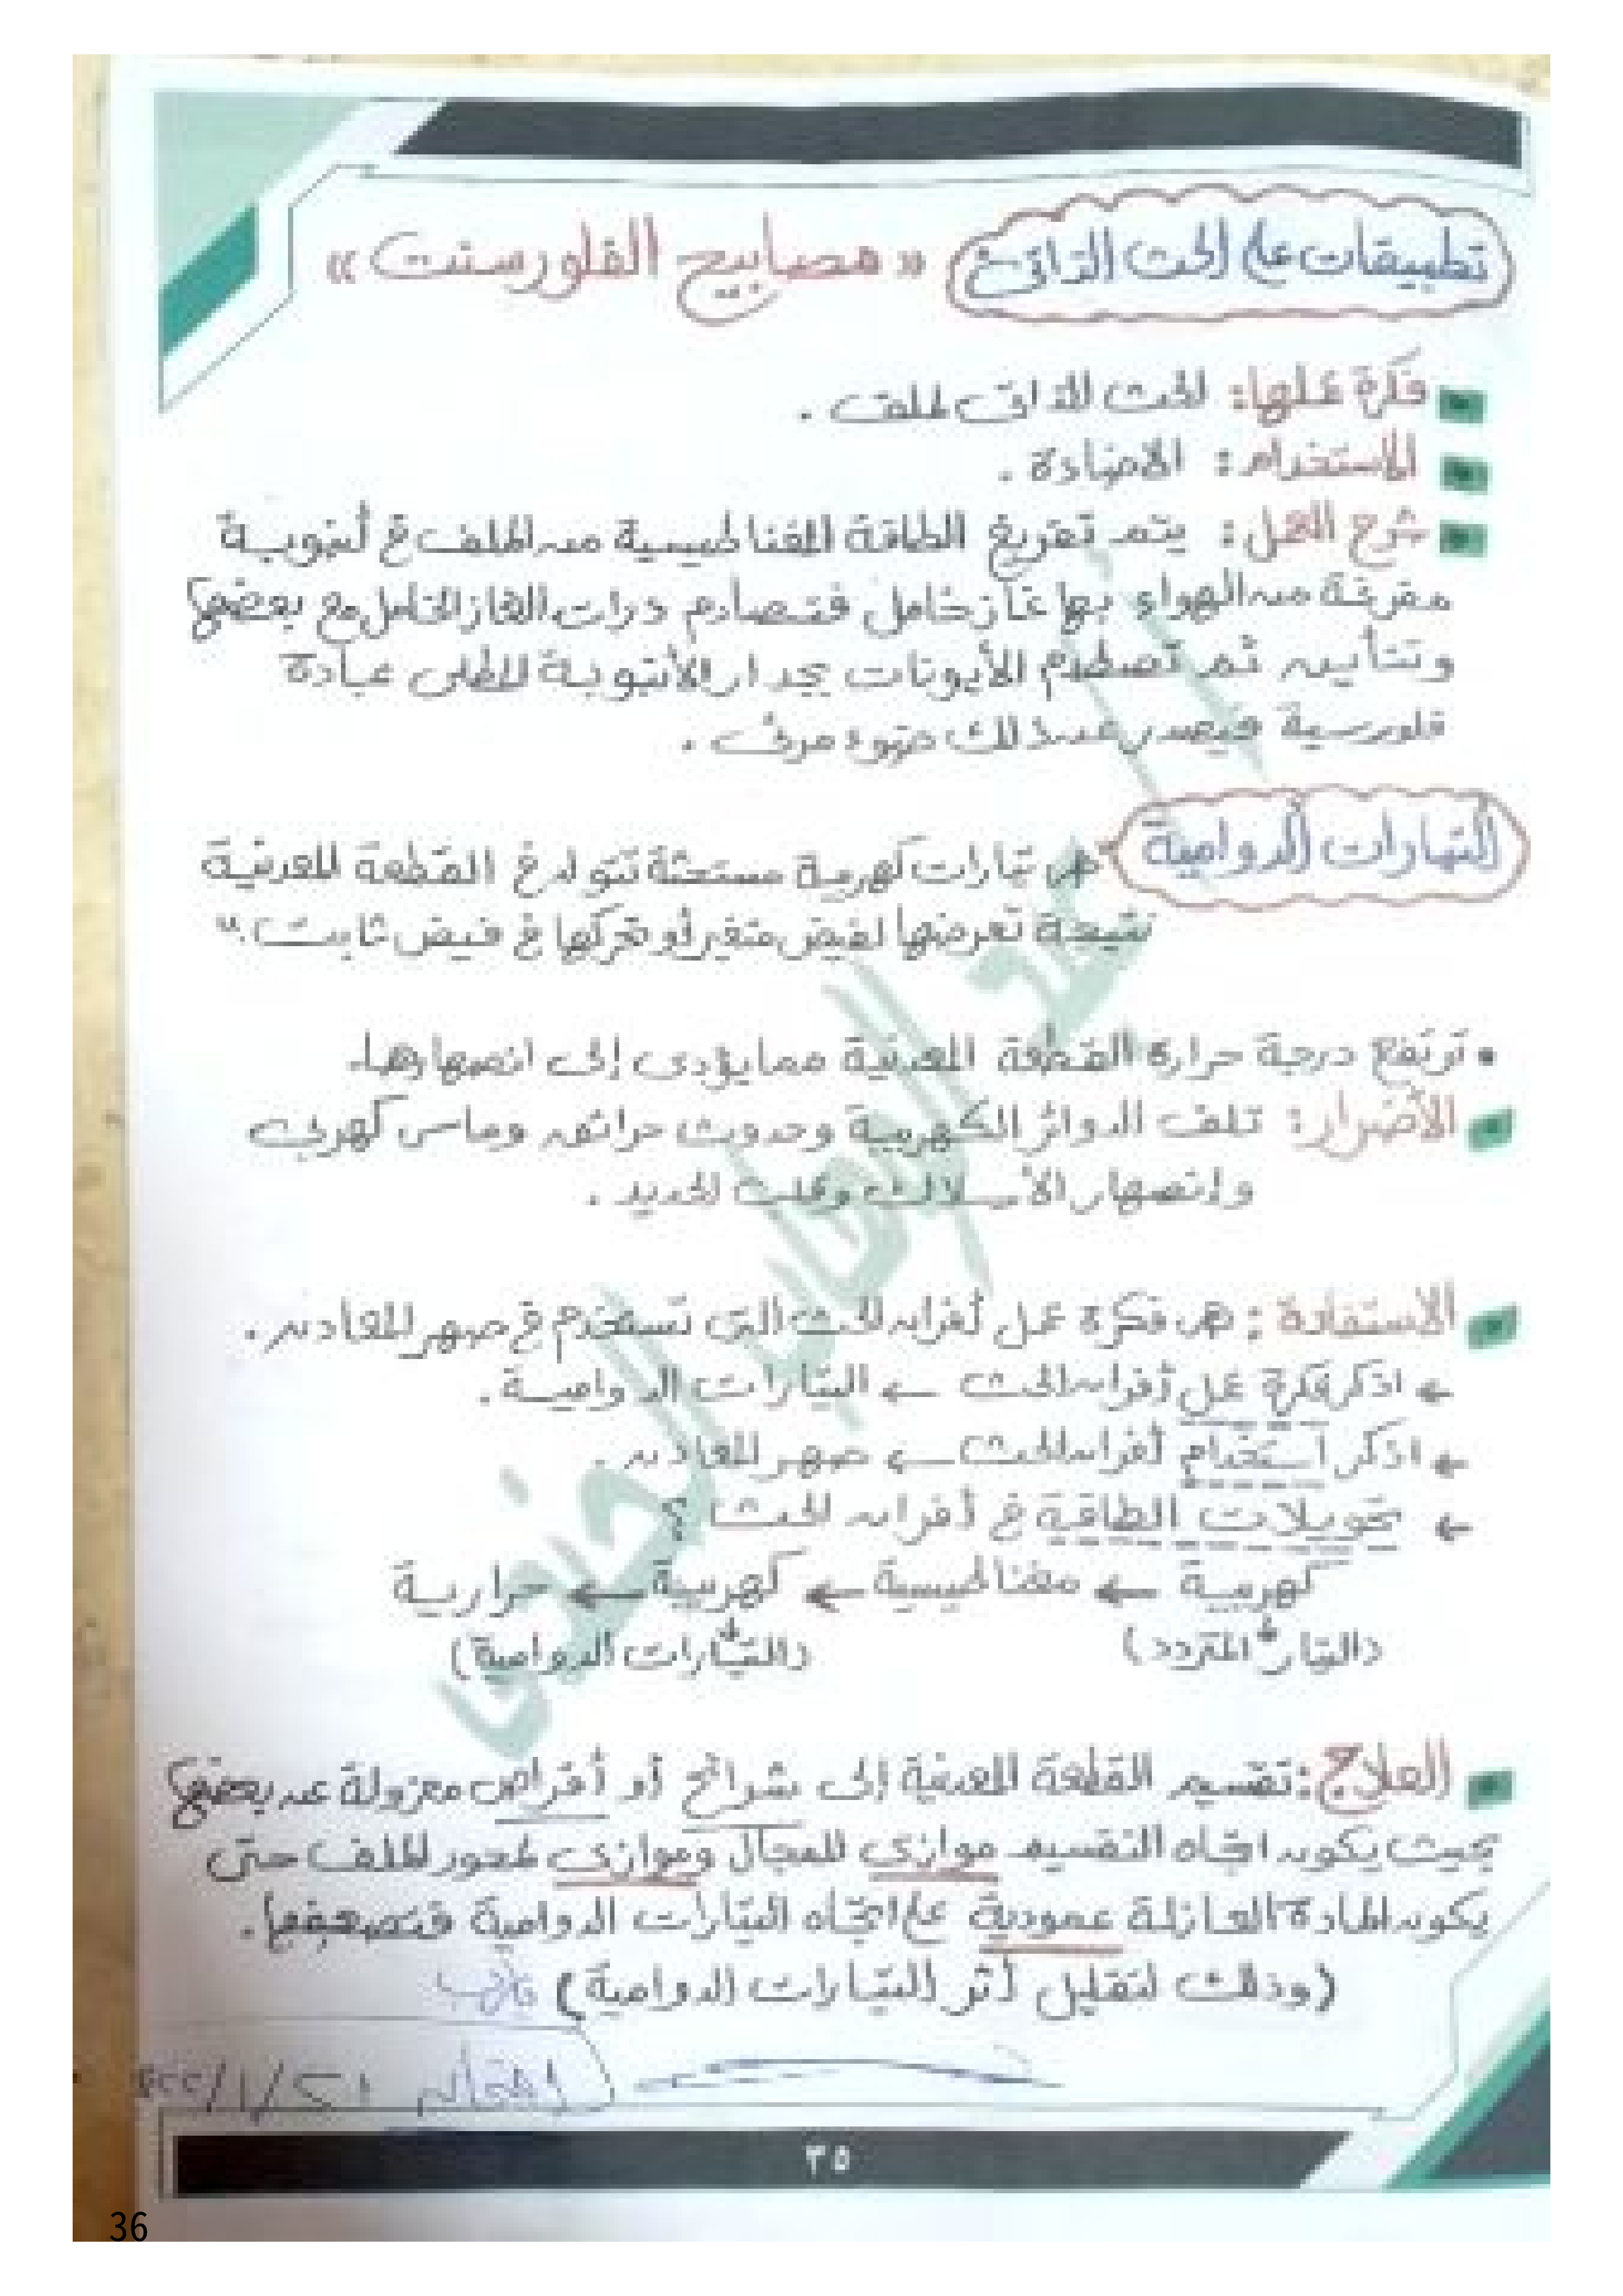 تطبيقات على الحث الذاتى « مصابيح الفلورسنت »
فكرة عملها: الحث الذاتى لملف .
الاستخدام: الاضاءة .
شرح العمل: يتم تفريغ الطاقة المغناطيسية من الملف فى أنبوبة
مفرغة من الهواء بها غاز خامل فتصادم ذرات الغاز الخامل مع بعضها
وتتأين ثم تصطدم الأيونات بجدار الأنبوبة المطلى بمادة
فلورسية فيصدر عن ذلك ضوء مرئى .
التيارات الدوامية هى تيارات كهربية مستحثة تتولد فى القطعة المعدنية
نتيجة تعرضها لفيض متغير أو تحركها فى فيض ثابت .
• ترتفع درجة حرارة القطعة المعدنية مما يؤدى إلى انصهارها .
الأضرار: تلف الدوائر الكهربية وحدوث حرائق وماس كهربى
وانصهار الأسلاك وقلب الحديد .
الاستفادة : هى فكرة عمل أفران الحث التى تستخدم فى صهر المعادن .
← اذكر فكرة عمل أفران الحث ← التيارات الدوامية .
← اذكر استخدام أفران الحث ← صهر المعادن .
← تحويلات الطاقة فى أفران الحث ؟
كهربية ← مغناطيسية ← كهربية ← حرارية
(التيار المتردد) (التيارات الدوامية)
العلاج: تقسيم القطعة المعدنية إلى شرائح أو أقراص معزولة عن بعضها
بحيث يكون اتجاه التقسيم موازى للمجال وموازى لمحور الملف حتى
يكون المادة العازلة عمودية على اتجاه التيارات الدوامية فتضعفها .
(وذلك لتقليل أثر التيارات الدوامية)
٣٥
36